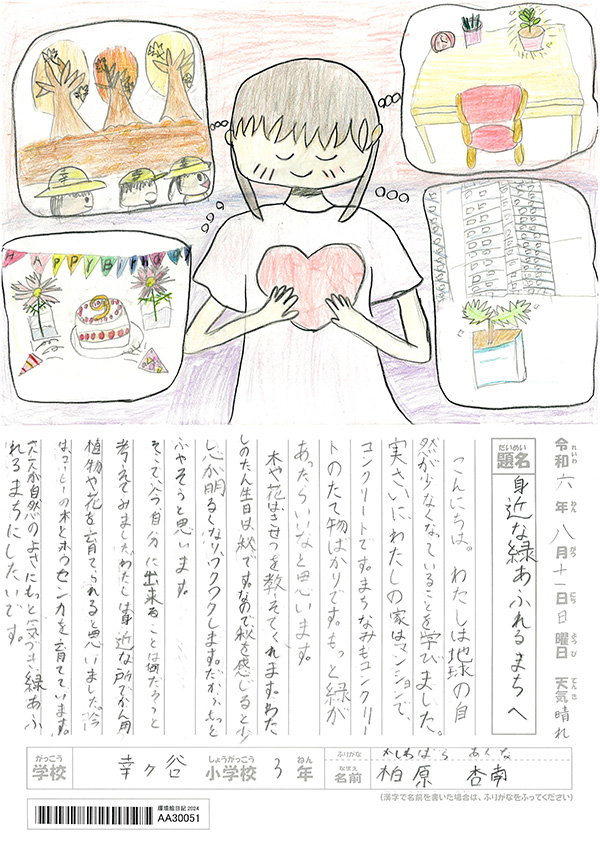 HAPPY BirthDAY
令和六年八月十一日日曜日 天気晴れ
れいわ ねん がつ にち ようび てんき
だいめい
題名
身近な緑あふれるまちへ
こんにちは。わたしは地球の自
然が少なくなっていることを学びました。
実さいにわたしの家はマンションで、
コンクリートです。まちなみもコンクリー
トのたて物ばかりです。もっと緑が
あったらいいなと思います。
木や花はきせつを教えてくれます。わた
しのたん生日は、秋です。なので秋を感じると少
し心が明るくなり、ワクワクします。だから、もっと
ふやそうと思います。
そこで、今自分に出来ることは何だろうと
考えてみました。わたしは身近な所でかん用
植物や花を育てられると思いました。今
はコーヒーの木とホウセンカを育てています。
人が自然のよさにもっと気づき、緑あふ
れるまちにしたいです。
がっこう しょうがっこう ねん
学校 幸ヶ谷 小学校 3年
ふりがな かしわばら あんな
なまえ
名前 柏原 杏南
(漢字で名前を書いた場合は、ふりがなをふってください)
環境絵日記 2024
AA30051